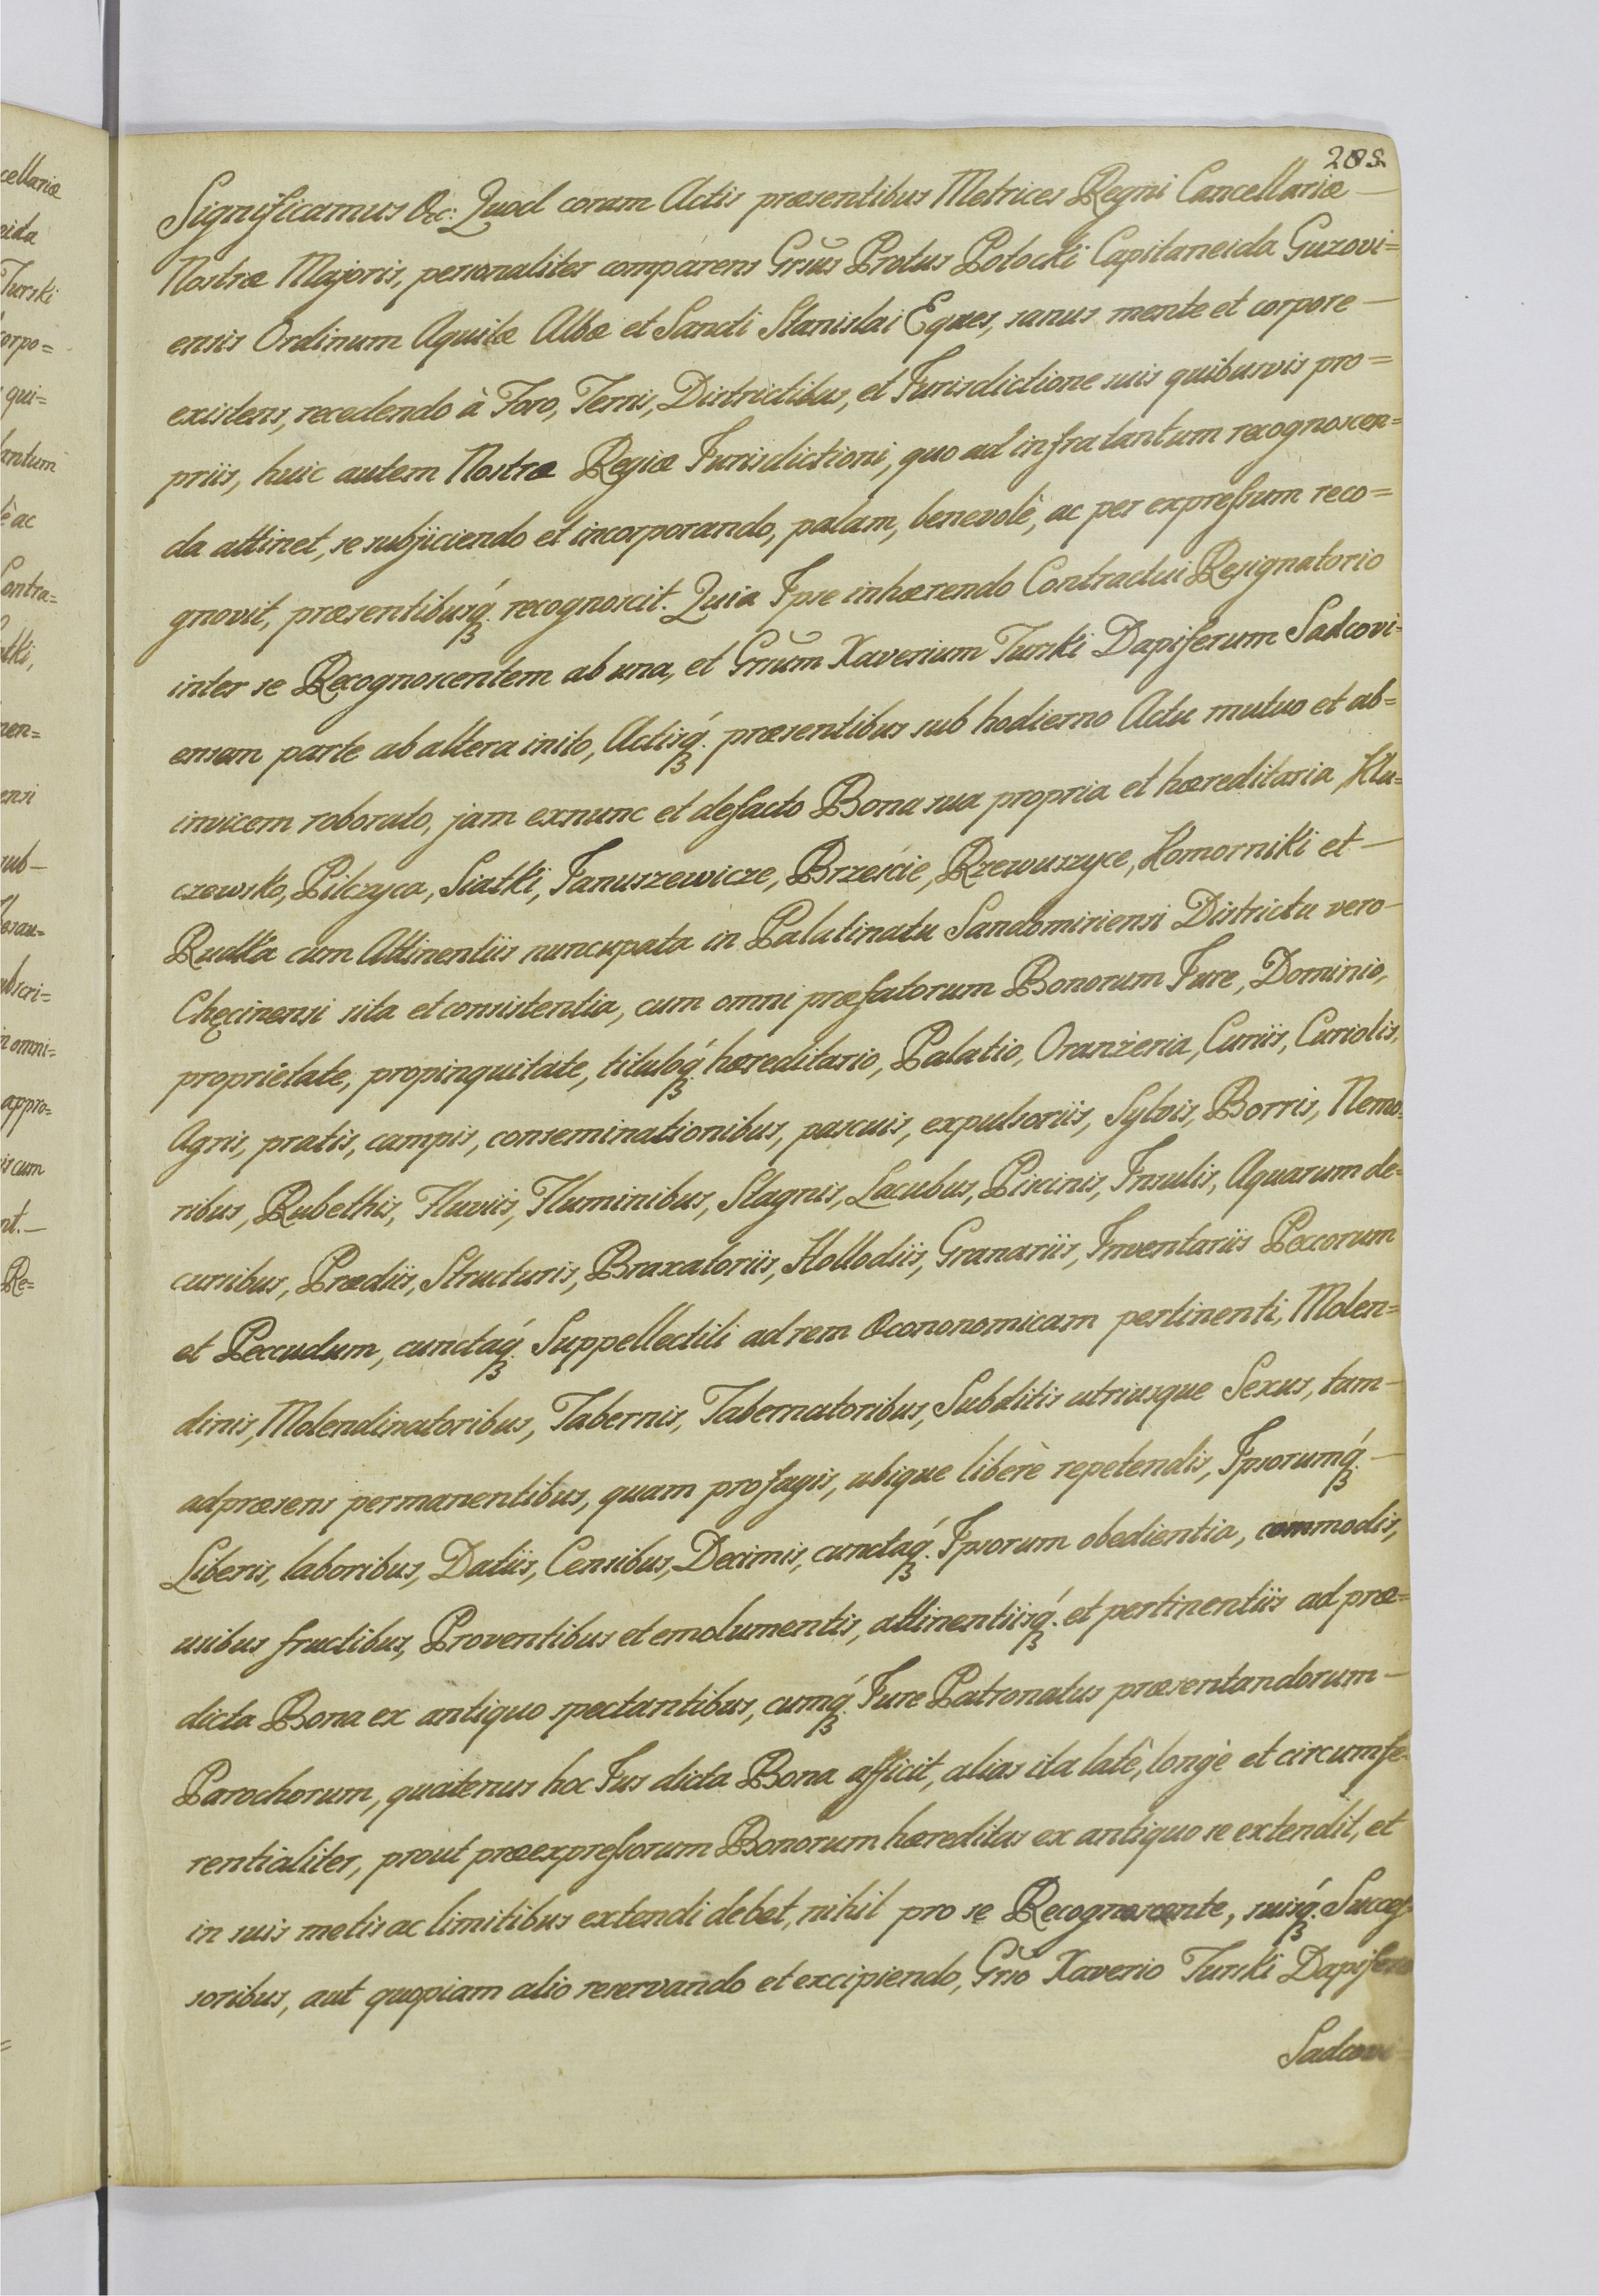 285
Significamus &c: Quod coram Actis præsentibus Metrices Regni Cancellariæ —
Nostræ Majoris, personaliter comparens Grsus Protus Potocki Capitaneida Guzovi=
ensis Ordinum Aquilæ Albæ et Sancti Stanislai Eques, sanus mente et corpore —
existens, recedendo à Foro, Terris, Districtibus, et Jurisdictione suis quibusvis pro=
priis, huic autem Nostræ Regiæ Jurisdictioni, quo ad infra tantum recognoscen=
da attinet, se subjiciendo et incorporando, palam, benevolè, ac per expressum reco=
gnovit, præsentibusq́ recognoscit. Quia Ipse inhærendo Contractui Resignatorio
inter se Recognoscentem ab una, et Grsum Xaverium Turski Dapiferum Sadcovi=
ensem parte ab altera inito, Actisq́ præsentibus sub hodierno Actu mutuo et ab=
invicem roborato, jam exnunc et defacto Bona sua propria et hæreditaria Klu=
czewsko, Pilczyca, Siatki, Januszewicze, Brzeście, Rzewuszyce, Komorniki et —
Rudka cum Attinentiis nuncupata in Palatinatu Sandomiriensi Districtu vero —
Chęcinensi sita et consistentia, cum omni præfatorum Bonorum Jure, Dominio,
proprietate, propinquitate, tituloq́ hæreditario, Palatio, Oranżeria, Curiis, Curiolis,
Agris, pratis, campis, conseminationibus, pascuis, expulsoriis, Sylvis, Borris, Nemo=
ribus, Rubethis, Fluviis, Fluminibus, Stagnis, Lacubus, Piscinis, Insulis, Aquarum de=
cursibus, Prædiis, Structuris, Braxatoriis, Hollodiis, Granariis, Inventariis Peccorum
et Peccudum, cunctaq́ Suppellectili ad rem Oecononomicam pertinenti, Molen=
dinis, Molendinatoribus, Tabernis, Tabernatoribus, Subditis utriusque Sexus, tam —
ad præsens permanentibus, quam profugis, ubique liberè repetendis, Ipsorumq́ —
Liberis, laboribus, Datiis, Censibus, Decimis, cunctaq́ Ipsorum obedientia, commodis,
usibus fructibus, Proventibus et emolumentis, attinentiisq́ et pertinentiis ad præ=
dicta Bona ex antiquo spectantibus, cumq́ Jure Patronatus præsentandorum —
Parochorum, quatenus hoc Jus dicta Bona afficit, alias ita latè, longè et circumfe=
rentialiter, prout præexpressorum Bonorum hæreditas ex antiquo se extendit, et
in suis metis ac limitibus extendi debet, nihil pro se Recognoscente, suisq́ Succes=
soribus, aut quopiam alio reservando et excipiendo, Grso Xaverio Turski Dapifero
Sadcovi=